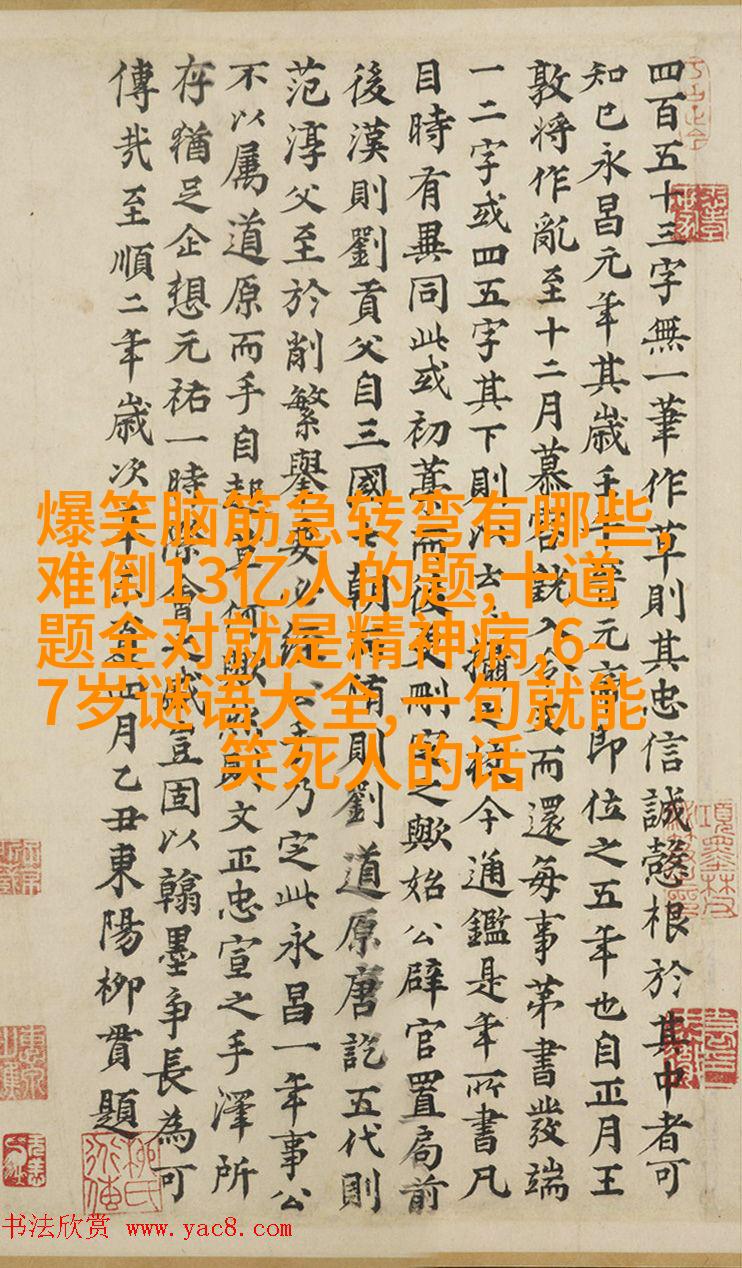 四百五十三字無一筆作草則其忠信誠慤根於其中者可
知已永昌元年其歲壬午晉元帝即位之五年也自正月王
敦將作亂至十二月慕容皝入令支而還每事第書發端
一二字或四五字其下則以 攝之 今通鑑是年所書凡
目時有異同此或初藁而後更刪定之歟始公辟官置局前
後漢則劉貢父自三國七朝而隋則劉道原唐訖五代則
范淳父至於削繁舉要必經公手乃定此永昌一年事公
不以屬道原而手自起草何歟 文正忠宣之手澤所
存猶足企想元祐一時際會之盛豈固以翰墨爭長為可
傳哉至順二年歲次 正月乙丑東陽柳貫題
爆笑脑筋急转弯有哪些,
难倒13亿人的题,十道
题全对就是精神病,6-
7岁谜语大全,一句就能
笑死人的话
柳氏
书法欣赏 www.yac8.com